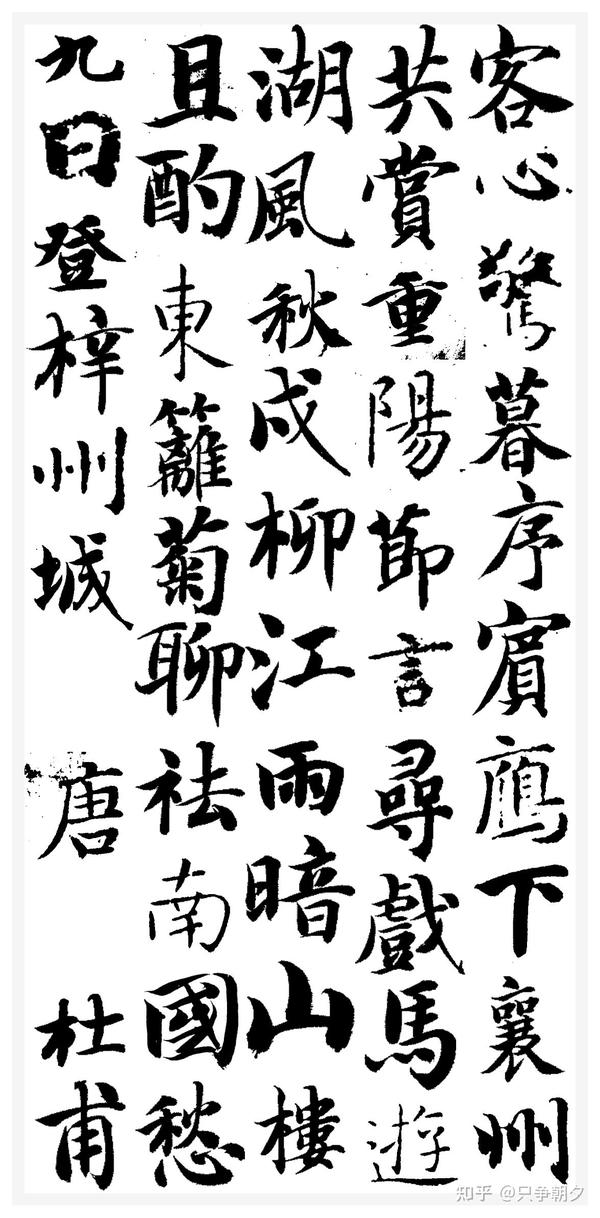 客心驚暮序賓鴈下襄州
共賞重陽節言尋戲馬遊
湖風秋戍柳江雨暗山樓
且酌東籬菊聊祛南國愁
九日登梓州城 唐 杜甫
知乎 @只争朝夕